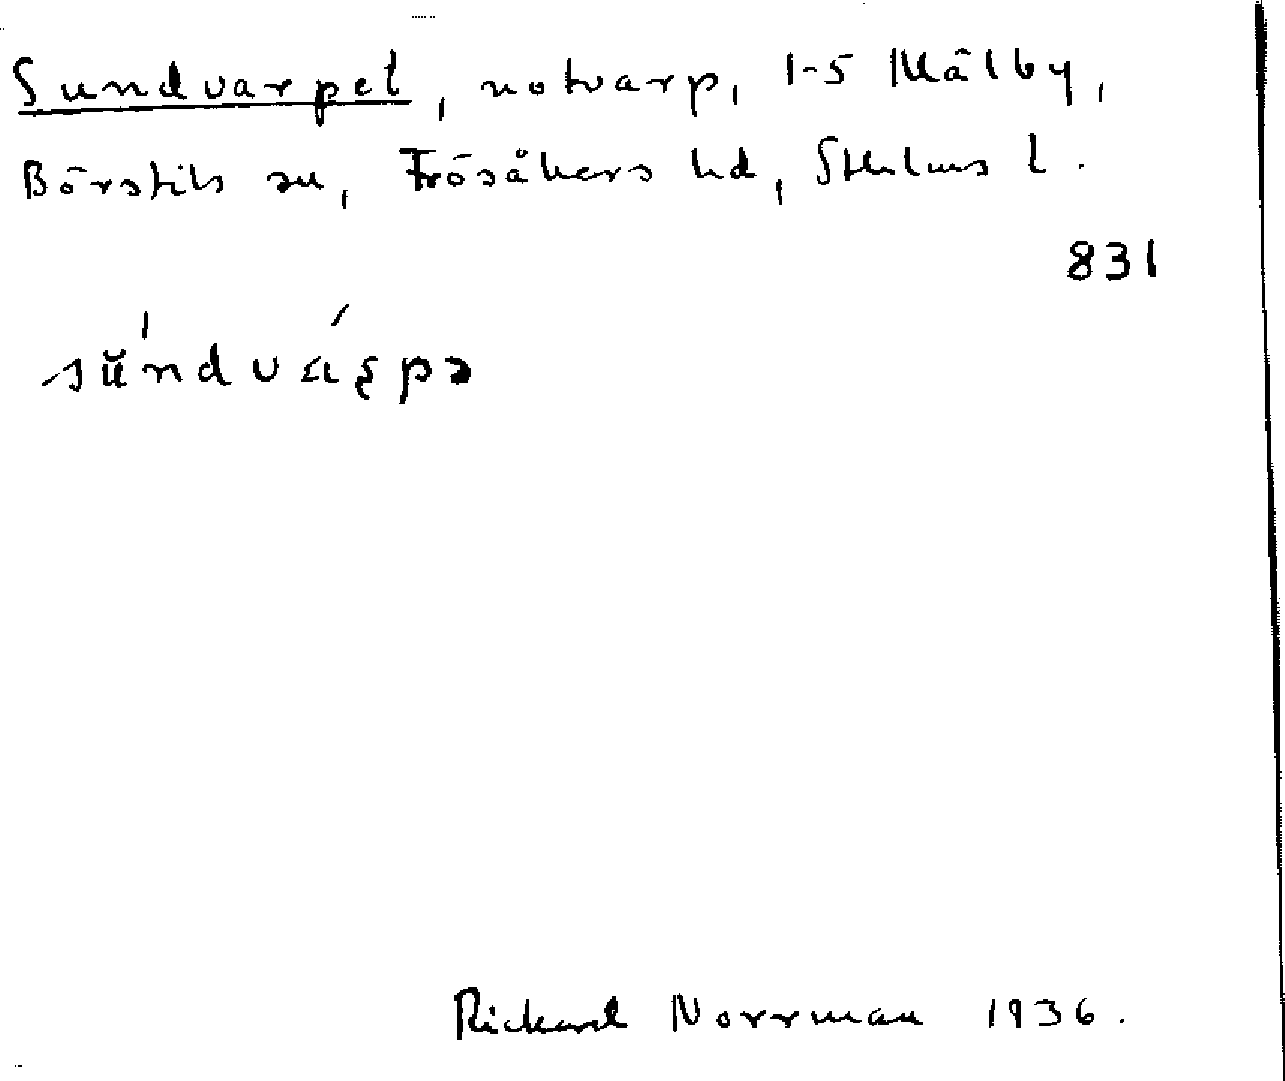 Sundvarpet, notvarp, 1-5 Mälby,
Börstils sn, Frösåkers hd, Sthlms l.
831
sŭ́ndvás̨pə
Rickard Norrman 1936.